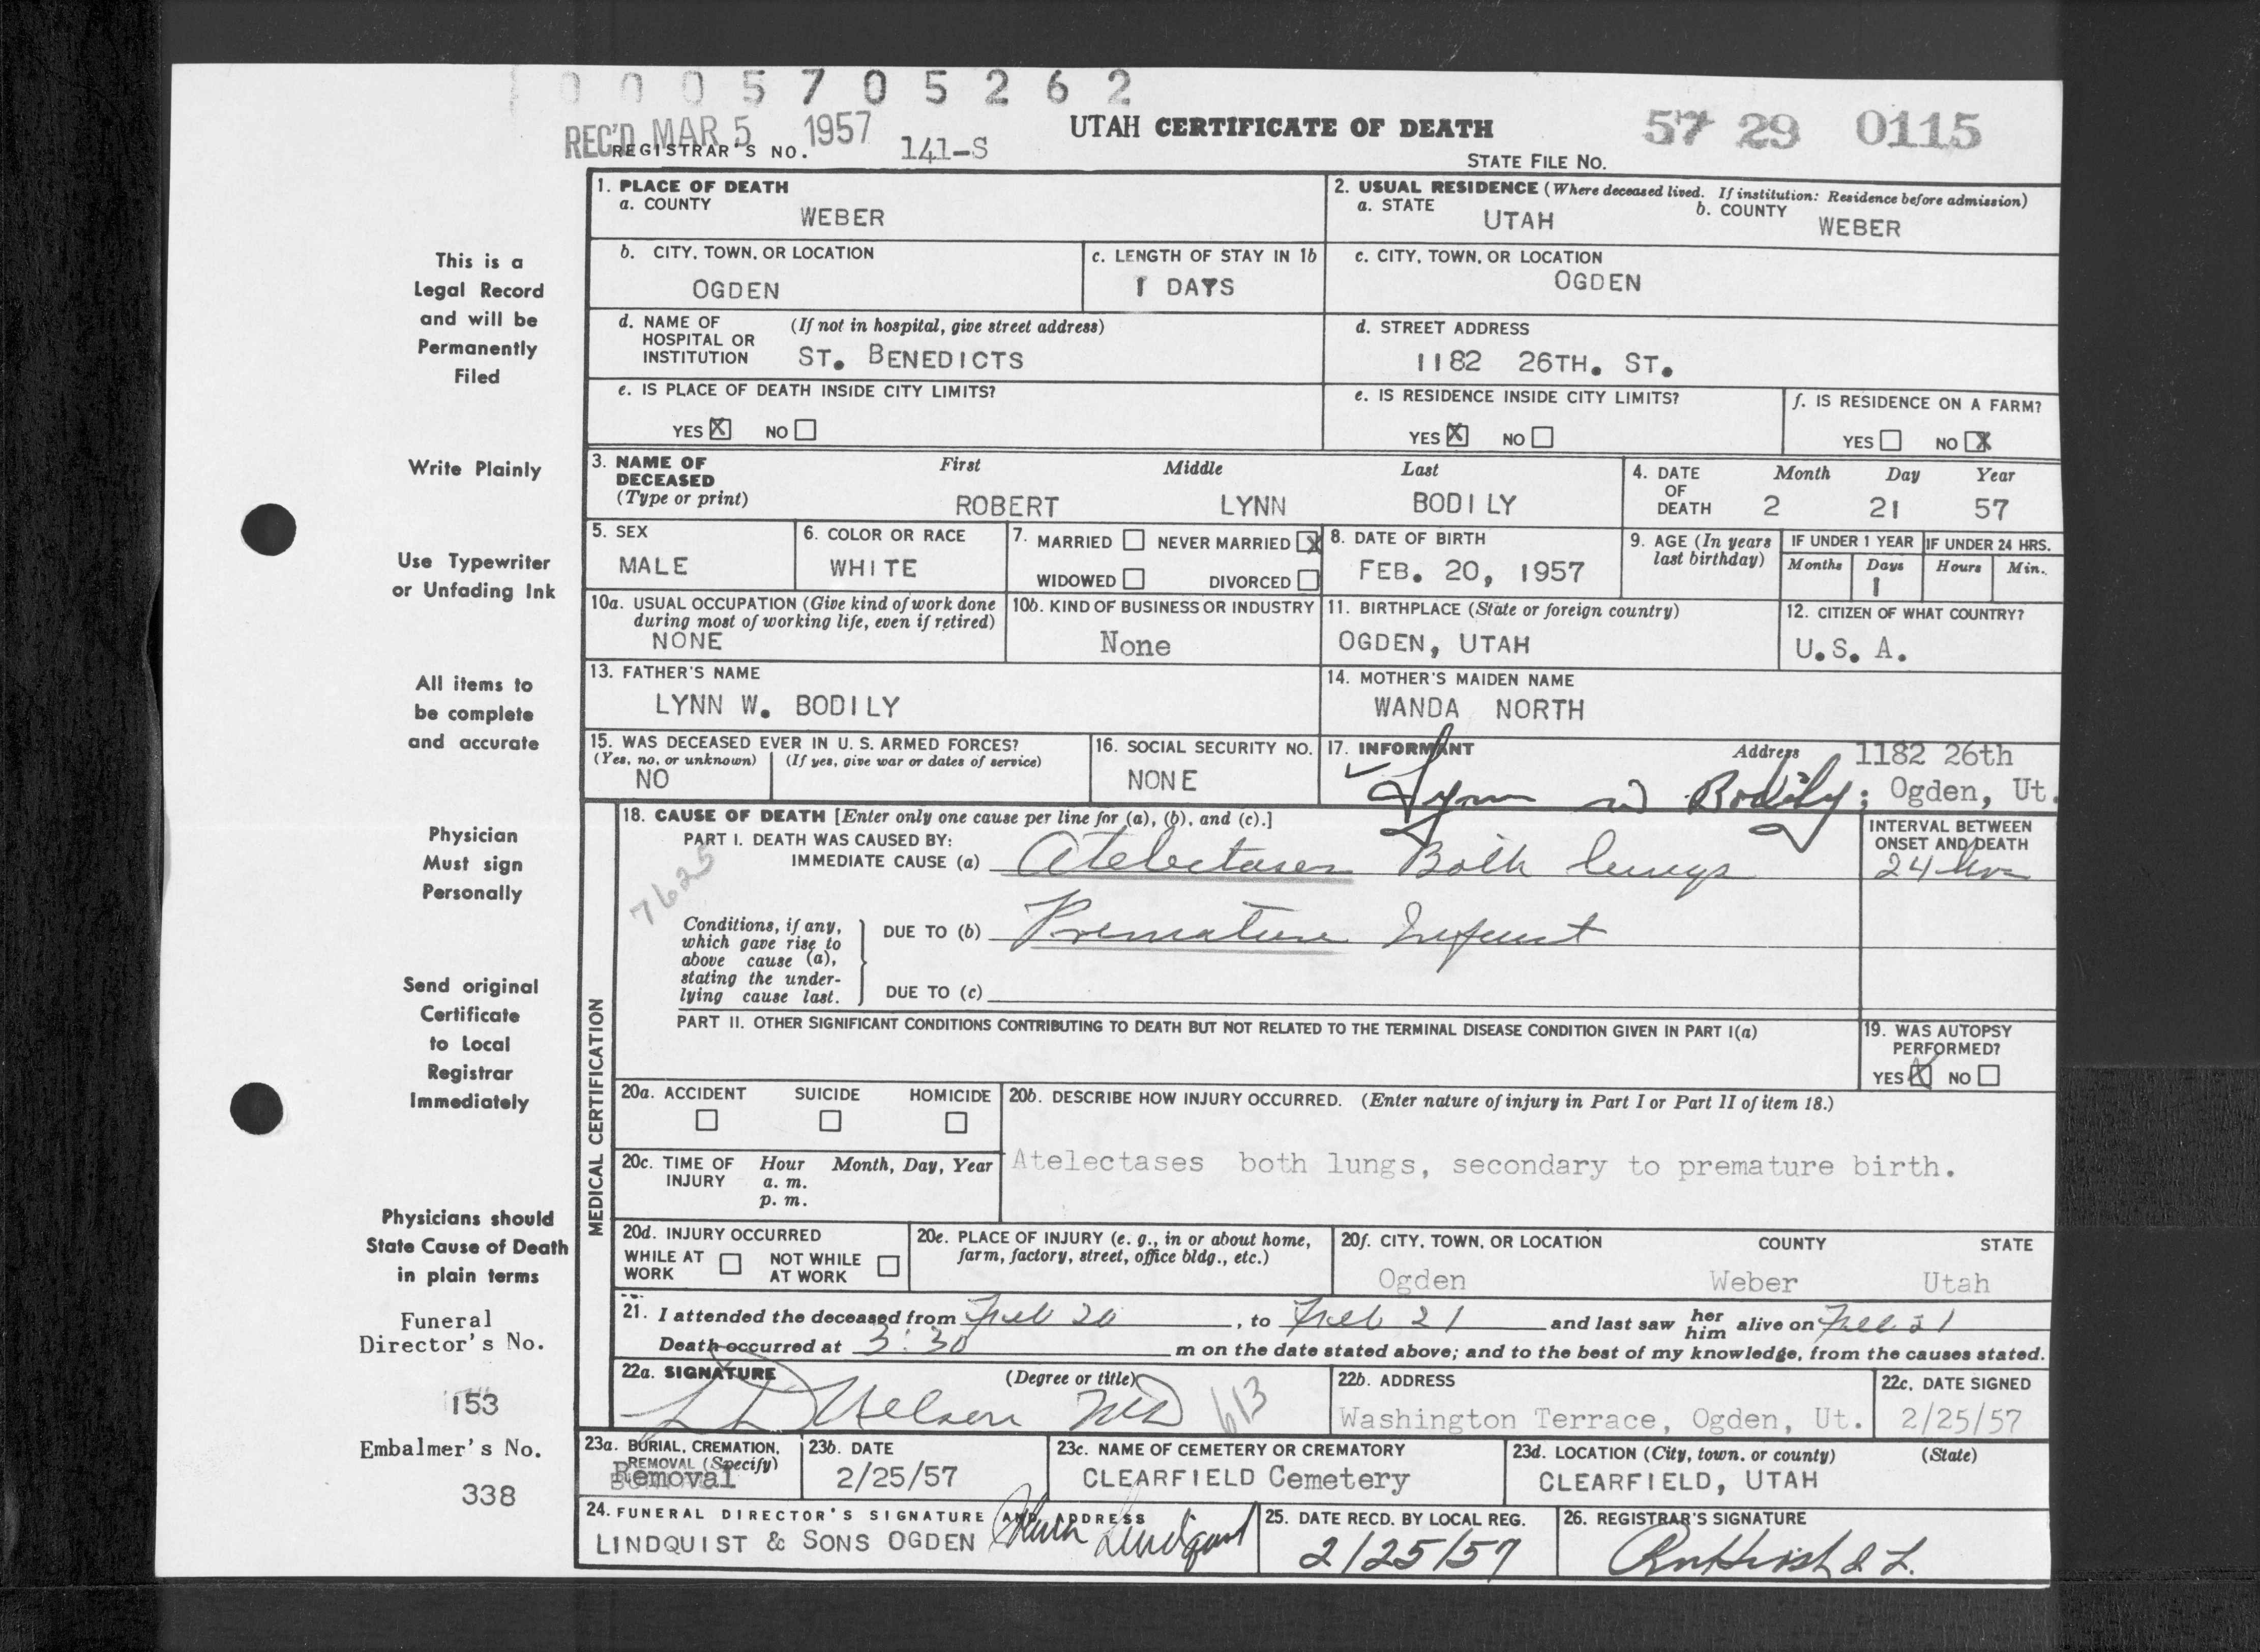 0005705262
REC'D MAR 5 1957
REGISTRAR'S NO. 141-S
UTAH CERTIFICATE OF DEATH
57 29 0115
STATE FILE NO.
This is a
Legal Record
and will be
Permanently
Filed
Write Plainly
Use Typewriter
or Unfading Ink
All items to
be complete
and accurate
Physician
Must sign
Personally
Send original
Certificate
to Local
Registrar
Immediately
Physicians should
State Cause of Death
in plain terms
Funeral
Director's No.
153
Embalmer's No.
338
1. PLACE OF DEATH
a. COUNTY
WEBER
2. USUAL RESIDENCE (Where deceased lived. If institution: Residence before admission)
a. STATE UTAH b. COUNTY WEBER
b. CITY, TOWN, OR LOCATION
OGDEN
c. LENGTH OF STAY IN 1b
1 DAYS
c. CITY, TOWN, OR LOCATION
OGDEN
d. NAME OF HOSPITAL OR INSTITUTION (If not in hospital, give street address)
ST. BENEDICTS
d. STREET ADDRESS
1182 26TH. ST.
e. IS PLACE OF DEATH INSIDE CITY LIMITS?
YES X NO
e. IS RESIDENCE INSIDE CITY LIMITS?
YES X NO
f. IS RESIDENCE ON A FARM?
YES NO X
3. NAME OF DECEASED (Type or print)
First Middle Last
ROBERT LYNN BODILY
4. DATE OF DEATH
Month Day Year
2 21 57
5. SEX
MALE
6. COLOR OR RACE
WHITE
7. MARRIED NEVER MARRIED X
WIDOWED DIVORCED
8. DATE OF BIRTH
FEB. 20, 1957
9. AGE (In years last birthday)
IF UNDER 1 YEAR IF UNDER 24 HRS.
Months Days Hours Min.
1
10a. USUAL OCCUPATION (Give kind of work done during most of working life, even if retired)
NONE
10b. KIND OF BUSINESS OR INDUSTRY
None
11. BIRTHPLACE (State or foreign country)
OGDEN, UTAH
12. CITIZEN OF WHAT COUNTRY?
U.S. A.
13. FATHER'S NAME
LYNN W. BODILY
14. MOTHER'S MAIDEN NAME
WANDA NORTH
15. WAS DECEASED EVER IN U. S. ARMED FORCES?
(Yes, no, or unknown) (If yes, give war or dates of service)
NO
16. SOCIAL SECURITY NO.
NONE
17. INFORMANT Address 1182 26th
Lynn W Bodily; Ogden, Ut.
MEDICAL CERTIFICATION
18. CAUSE OF DEATH [Enter only one cause per line for (a), (b), and (c).]
PART I. DEATH WAS CAUSED BY:
IMMEDIATE CAUSE (a) Atelectases Both lungs
INTERVAL BETWEEN ONSET AND DEATH
24 hrs
7625
Conditions, if any, which gave rise to above cause (a), stating the underlying cause last.
DUE TO (b) Premature Infant
DUE TO (c)
PART II. OTHER SIGNIFICANT CONDITIONS CONTRIBUTING TO DEATH BUT NOT RELATED TO THE TERMINAL DISEASE CONDITION GIVEN IN PART I(a)
19. WAS AUTOPSY PERFORMED?
YES X NO
20a. ACCIDENT SUICIDE HOMICIDE
20b. DESCRIBE HOW INJURY OCCURRED. (Enter nature of injury in Part I or Part II of item 18.)
Atelectases both lungs, secondary to premature birth.
20c. TIME OF INJURY Hour Month, Day, Year
a. m.
p. m.
20d. INJURY OCCURRED
WHILE AT WORK NOT WHILE AT WORK
20e. PLACE OF INJURY (e. g., in or about home, farm, factory, street, office bldg., etc.)
20f. CITY, TOWN, OR LOCATION COUNTY STATE
Ogden Weber Utah
21. I attended the deceased from Feb 20, to Feb 21 and last saw her him alive on Feb 21
Death occurred at 3:30 m on the date stated above; and to the best of my knowledge, from the causes stated.
22a. SIGNATURE (Degree or title)
L D Nelson MD 613
22b. ADDRESS
Washington Terrace, Ogden, Ut.
22c. DATE SIGNED
2/25/57
23a. BURIAL, CREMATION, REMOVAL (Specify)
Removal
23b. DATE
2/25/57
23c. NAME OF CEMETERY OR CREMATORY
CLEARFIELD Cemetery
23d. LOCATION (City, town, or county) (State)
CLEARFIELD, UTAH
24. FUNERAL DIRECTOR'S SIGNATURE AND ADDRESS
LINDQUIST & SONS OGDEN Lindquist
25. DATE RECD. BY LOCAL REG.
2/25/57
26. REGISTRAR'S SIGNATURE